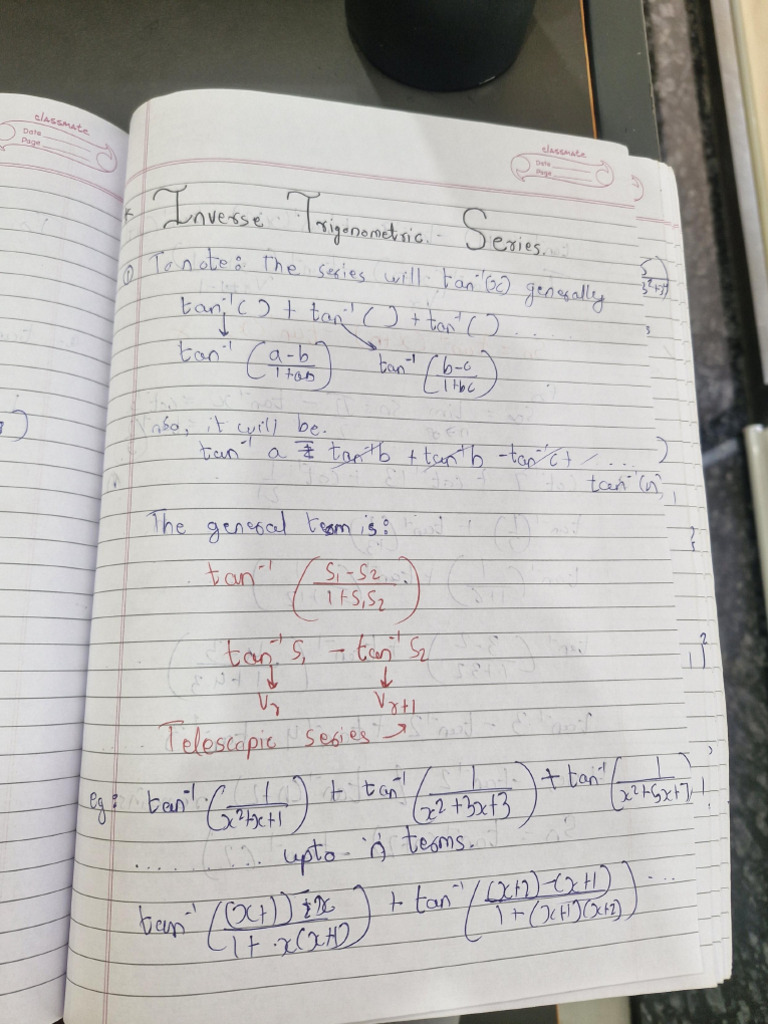 classmate
Date
Page
classmate
Date
Page
* Inverse Trigonometric Series.
① To note: The series will tan⁻¹(x) generally
tan⁻¹( ) + tan⁻¹( ) + tan⁻¹( ) ....
tan⁻¹ ((a-b)/(1+ab)) tan⁻¹ ((b-c)/(1+bc))
Also, it will be.
tan⁻¹ a - tan⁻¹b + tan⁻¹b - tan⁻¹c + .....
tan⁻¹(n)
The general term is:
tan⁻¹ ((S₁-S₂)/(1+S₁S₂))
tan⁻¹ S₁ - tan⁻¹ S₂
↓ ↓
Vᵣ Vᵣ₊₁
Telescopic series →
eg: tan⁻¹ (1/(x²+x+1)) + tan⁻¹ (1/(x²+3x+3)) + tan⁻¹ (1/(x²+5x+7))
......... upto 'n' terms.
tan⁻¹ (((x+1)-x)/(1+x(x+1))) + tan⁻¹ (((x+2)-(x+1))/(1+(x+1)(x+2))) ...